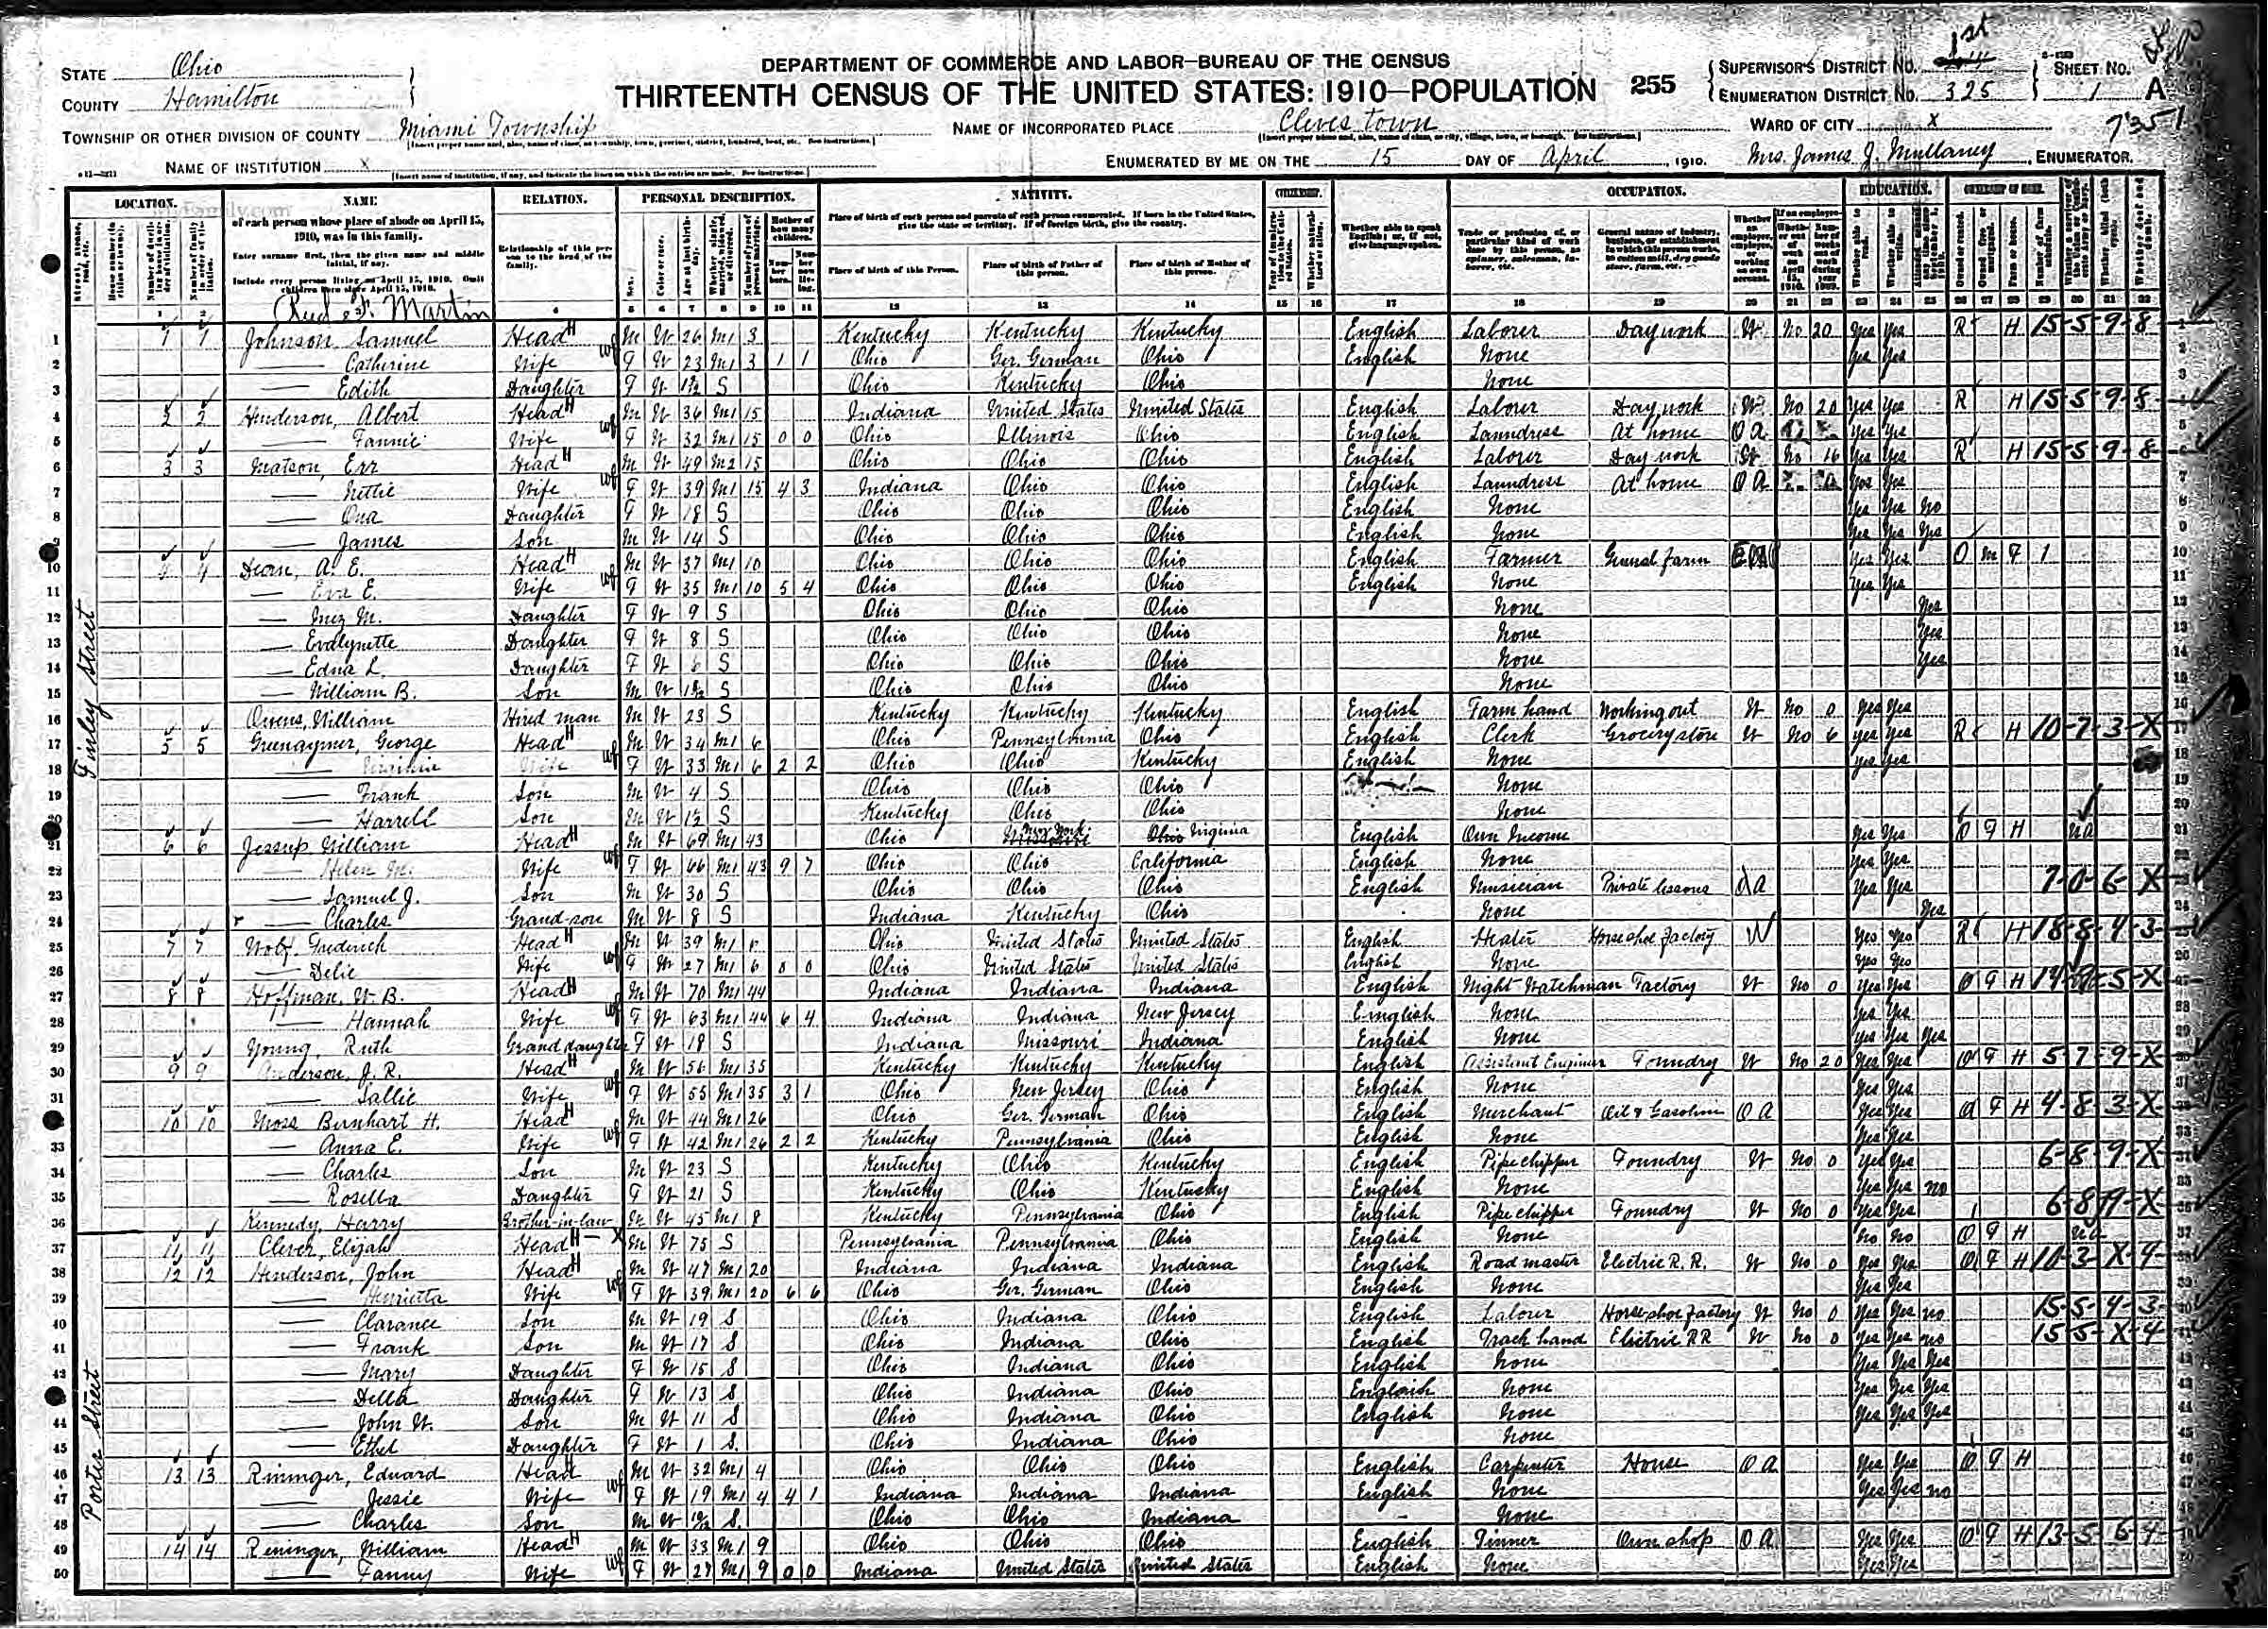 STATE Ohio
COUNTY Hamilton
TOWNSHIP OR OTHER DIVISION OF COUNTY Miami Township
NAME OF INSTITUTION X
DEPARTMENT OF COMMERCE AND LABOR—BUREAU OF THE CENSUS
THIRTEENTH CENSUS OF THE UNITED STATES: 1910—POPULATION
255
NAME OF INCORPORATED PLACE Cleves Town
ENUMERATED BY ME ON THE 15 DAY OF April, 1910.
SUPERVISOR'S DISTRICT NO. 1st
ENUMERATION DISTRICT NO. 325
SHEET NO. 1 A
WARD OF CITY X
7351
Mrs. James J. Mullaney, ENUMERATOR.
LOCATION. NAME RELATION. PERSONAL DESCRIPTION. NATIVITY. CITIZENSHIP. OCCUPATION. EDUCATION.
of each person whose place of abode on April 15, 1910, was in this family.
Enter surname first, then the given name and middle initial, if any.
Include every person living on April 15, 1910. Omit children born since April 15, 1910.
Relationship of this person to the head of the family.
Place of birth of each person and parents of each person enumerated. If born in the United States, give the state or territory. If of foreign birth, give the country.
Place of birth of this Person. Place of birth of Father of this person. Place of birth of Mother of this person.
Whether able to speak English; or, if not, give language spoken.
Finley Street
1 1 1 Johnson Samuel Head M W 26 M1 3 Kentucky Kentucky Kentucky English Laborer Day work W No 20 Yes Yes R H 15-5-9-8
2 Catherine Wife F W 23 M1 3 1 1 Ohio Ger. German Ohio English None Yes Yes
3 Edith Daughter F W S Ohio Kentucky Ohio None
4 2 2 Henderson, Albert Head M W 36 M1 15 Indiana United States United States English Laborer Day work W No 20 Yes Yes R H 15-5-9-8
5 Fannie Wife F W 32 M1 15 0 0 Ohio Illinois Ohio English Laundress At home O A Yes Yes
6 3 3 Matson, Head M W 49 M2 15 Ohio Ohio Ohio English Laborer Day work W No 16 Yes Yes R H 15-5-9-8
7 Nettie Wife F W 39 M1 15 4 3 Indiana Ohio Ohio English Laundress At home O A Yes Yes
8 Ona Daughter F W 18 S Ohio Ohio Ohio English None Yes Yes No
9 James Son M W 14 S Ohio Ohio Ohio English None Yes Yes Yes
10 4 4 A. E. Head M W 37 M1 10 Ohio Ohio Ohio English Farmer General farm Yes Yes O M F 1
11 Eva E. Wife F W 35 M1 10 5 4 Ohio Ohio Ohio English None Yes Yes
12 Inez M. Daughter F W 9 S Ohio Ohio Ohio None Yes
13 Evalynette Daughter F W 8 S Ohio Ohio Ohio None Yes
14 Edna L. Daughter F W 6 S Ohio Ohio Ohio None Yes
15 William B. Son M W S Ohio Ohio Ohio None
16 Owens, William Hired man M W 23 S Kentucky Kentucky Kentucky English Farm hand Working out W No 0 Yes Yes
17 5 5 George Head M W 34 M1 6 Ohio Pennsylvania Ohio English Clerk Grocery store W No 6 Yes Yes R H 10-7-3-X
18 Virginia Wife F W 33 M1 6 2 2 Ohio Ohio Kentucky English None Yes Yes
19 Frank Son M W 4 S Ohio Ohio Ohio None
20 Harrell Son M W S Kentucky Ohio Ohio None
21 6 6 Jessup William Head M W 69 M1 43 Ohio New York Virginia English Own Income Yes Yes O F H
22 Helen M. Wife F W 66 M1 43 9 7 Ohio Ohio California English None Yes Yes
23 Samuel J. Son M W 30 S Ohio Ohio Ohio English Musician Private lessons O A Yes Yes 7-0-6-X
24 Charles Grand-son M W 8 S Indiana Kentucky Ohio None Yes
25 7 7 Wolf Frederick Head M W 39 M1 Ohio United States United States English Heater Horse shoe factory W Yes Yes R H 18-8-4-3
26 Delie Wife F W 27 M1 6 0 0 Ohio United States United States English None Yes Yes
27 8 8 Hoffman, W. B. Head M W 70 M1 44 Indiana Indiana Indiana English Night Watchman Factory W No 0 Yes Yes O F H
28 Hannah Wife F W 63 M1 44 6 4 Indiana Indiana New Jersey English None Yes Yes
29 Young, Ruth Grand daughter F W 18 S Indiana Missouri Indiana English None Yes Yes Yes
30 9 9 Anderson, J. R. Head M W 56 M1 35 Kentucky Kentucky Kentucky English Assistant Engineer Foundry W No 20 Yes Yes O F H 5-7-9-X
31 Sallie Wife F W 55 M1 35 3 1 Ohio New Jersey Ohio English None Yes Yes
32 10 10 Moss Bernhart H. Head M W 44 M1 26 Ohio Ger. German Ohio English Merchant Oil & Gasoline O A Yes Yes O F H 4-8-3-X
33 Anna E. Wife F W 42 M1 26 2 2 Kentucky Pennsylvania Ohio English None Yes Yes
34 Charles Son M W 23 S Kentucky Ohio Kentucky English Pipe chipper Foundry W No 0 Yes Yes 6-8-9-X
35 Rosella Daughter F W 21 S Kentucky Ohio Kentucky English None Yes Yes No
36 Kennedy, Harry Brother-in-law M W 45 M1 8 Kentucky Pennsylvania Ohio English Pipe chipper Foundry W No 0 Yes Yes 6-8-9-X
Porter Street
37 11 11 Clever, Elijah Head M W 75 S Pennsylvania Pennsylvania Ohio English None No No O F H
38 12 12 Henderson, John Head M W 47 M1 20 Indiana Indiana Indiana English Road master Electric R. R. W No 0 Yes Yes O F H 10-3-X-4
39 Henrietta Wife F W 39 M1 20 6 6 Ohio Ger. German Ohio English None Yes Yes
40 Clarance Son M W 19 S Ohio Indiana Ohio English Laborer Horse-shoe factory W No 0 Yes Yes No 15-5-4-3
41 Frank Son M W 17 S Ohio Indiana Ohio English Track hand Electric RR W No 0 Yes Yes No 15-5-X-4
42 Mary Daughter F W 15 S Ohio Indiana Ohio English None Yes Yes Yes
43 Della Daughter F W 13 S Ohio Indiana Ohio English None Yes Yes Yes
44 John W. Son M W 11 S Ohio Indiana Ohio English None Yes Yes Yes
45 Ethel Daughter F W 1 S Ohio Indiana Ohio None
46 13 13 Rininger, Edward Head M W 32 M1 4 Ohio Ohio Ohio English Carpenter House O A Yes Yes O F H
47 Jessie Wife F W 19 M1 4 4 1 Indiana Indiana Indiana English None Yes Yes No
48 Charles Son M W S Ohio Ohio Indiana None
49 14 14 Reninger, William Head M W 33 M1 9 Ohio Ohio Ohio English Tinner Own shop O A Yes Yes O F H 13-5-6-4
50 Fanny Wife F W 27 M1 9 0 0 Indiana United States United States English None Yes Yes